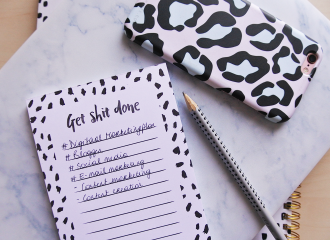 Get shit done
# Digital Marketingplan
# Blogger
# Social media
# E-mail marketing
- Content marketing
- Content creation